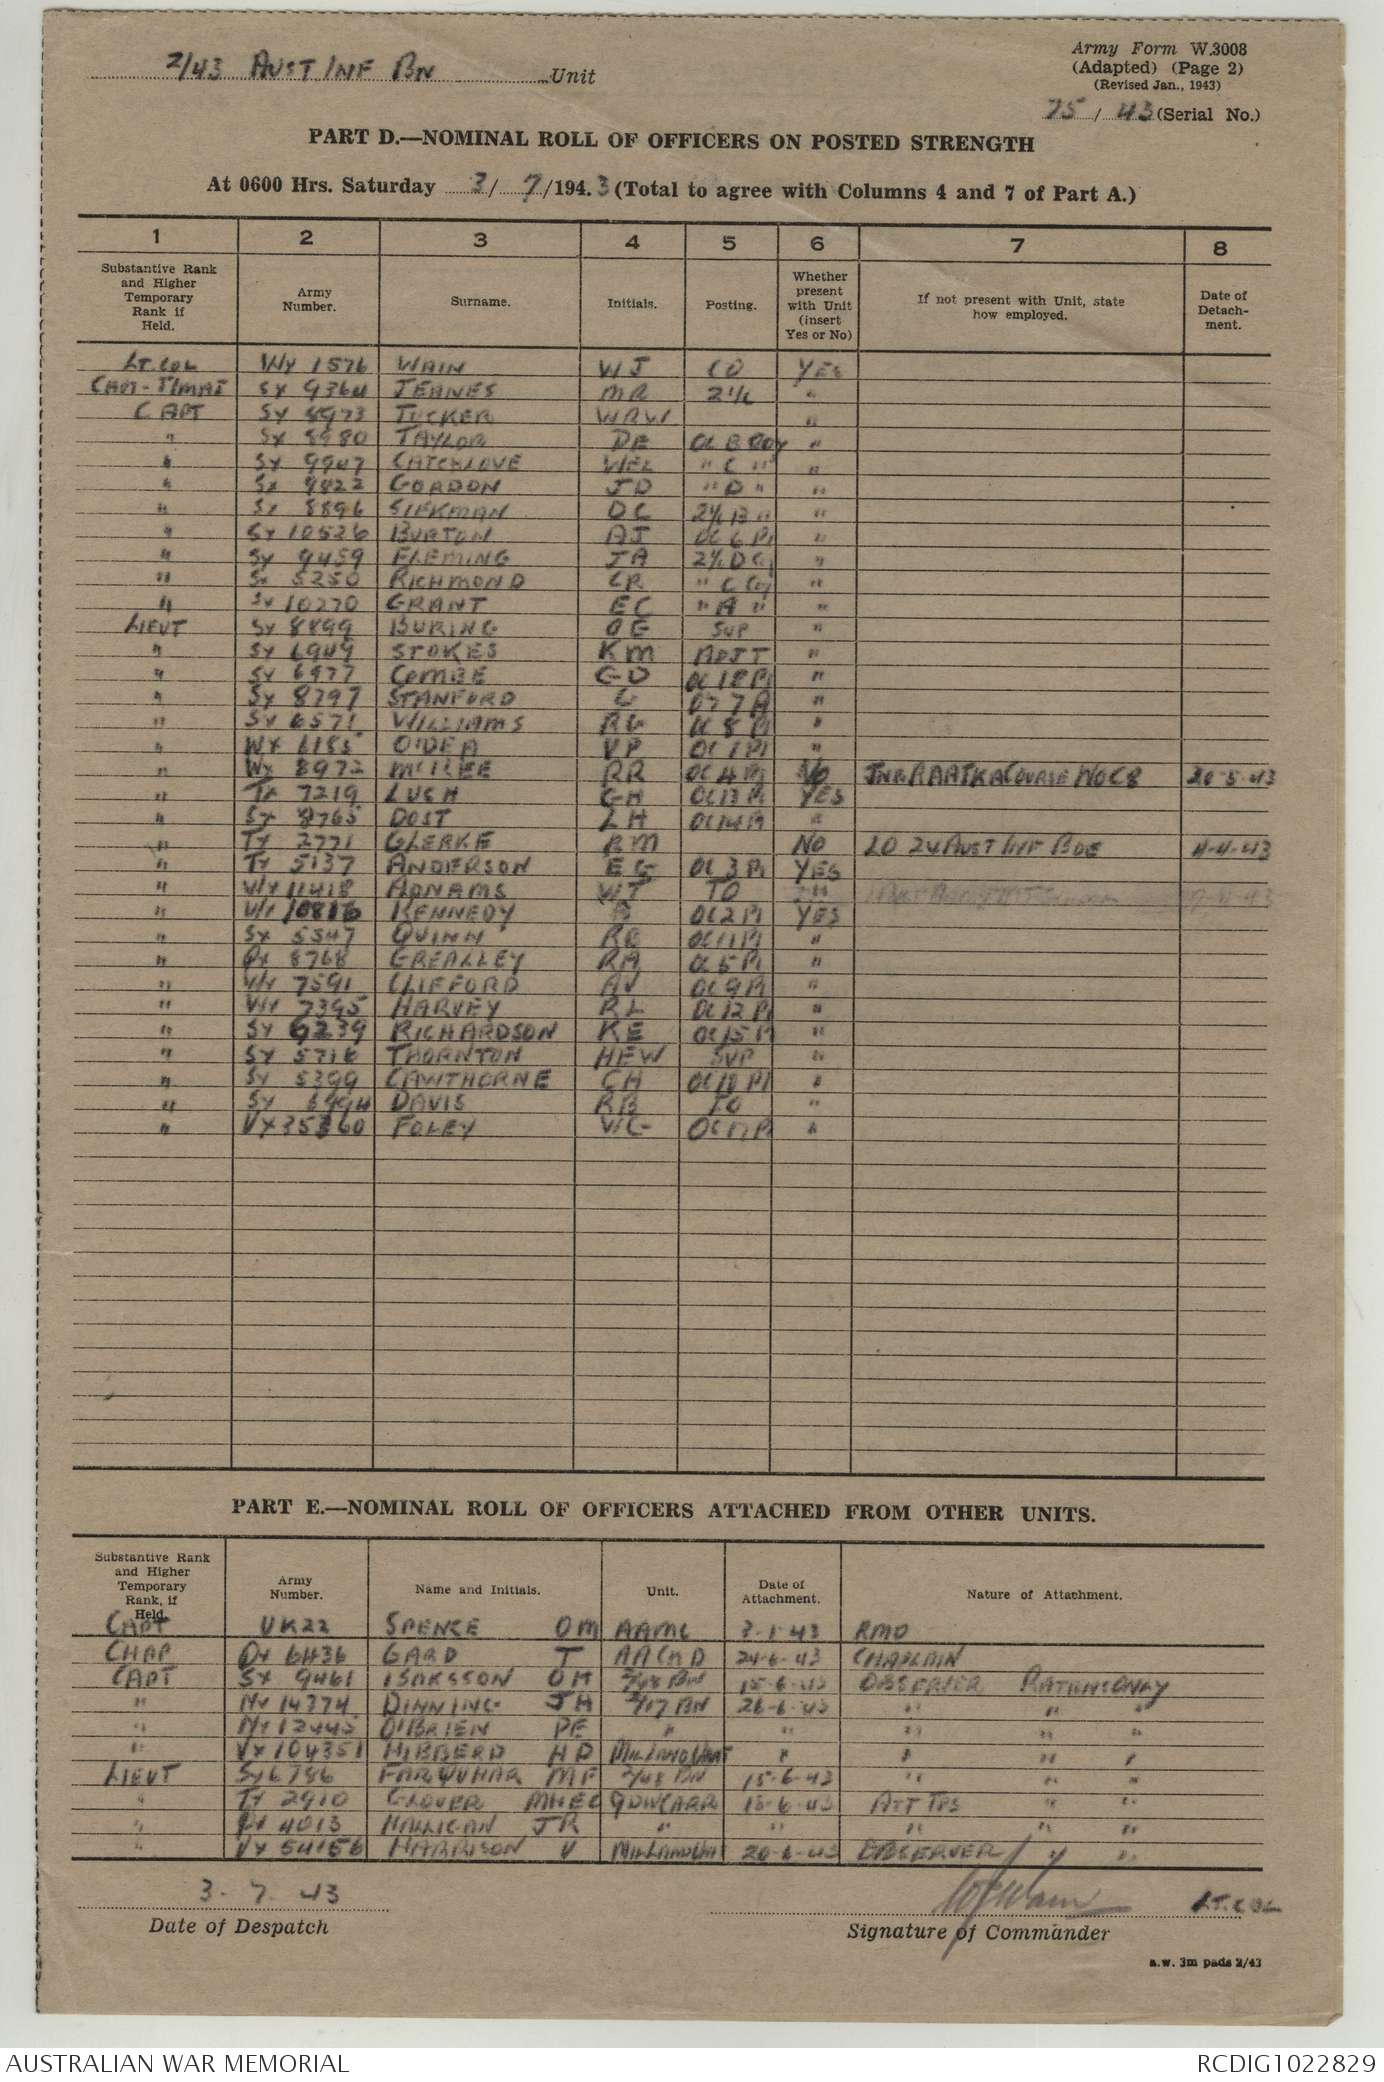 2/43 AUST INF BN Unit
Army Form W.3008
(Adapted) (Page 2)
(Revised Jan., 1943)
75 / 43 (Serial No.)
PART D.—NOMINAL ROLL OF OFFICERS ON POSTED STRENGTH
At 0600 Hrs. Saturday 3/7/1943 (Total to agree with Columns 4 and 7 of Part A.)
1 2 3 4 5 6 7 8
Substantive Rank and Higher Temporary Rank if Held. Army Number. Surname. Initials. Posting. Whether present with Unit (insert Yes or No) If not present with Unit, state how employed. Date of Detachment.
LT COL WX 1576 WAIN WJ CO YES
CAPT-T/MAJ SX 9364 JEANES MR 2I/C "
CAPT SX 8973 TUCKER WRW "
" SX 8980 TAYLOR DE OC B COY "
" SX 9947 CATCHLOVE WEL " C " "
" SX 9822 GORDON JD " D " "
" SX 8896 SIEKMAN DC 2I/C B " "
" SX 10526 BURTON AJ OC 6 Pl "
" SX 9459 FLEMING JA 2I/C D Coy "
" SX 5250 RICHMOND CR " C Coy "
" SX 10270 GRANT EC " A " "
LIEUT SX 8899 BURING OE SUP "
" SX 6949 STOKES KM ADJT "
" SX 6977 COMBE GD OC 18 Pl "
" SX 8797 STANFORD G OC 7 Pl "
" SX 6571 WILLIAMS RG OC 8 Pl "
" WX 6185 O'DEA VP OC 1 Pl "
" WX 8972 McILEE RR OC 4 Pl NO COURSE No C8 20-5-43
" TX 7219 LUSH GH OC 13 Pl YES
" SX 8765 DOST LH OC 14 Pl "
" TX 2771 CLERKE BM NO LO 24 AUST INF BDE 4-4-43
" TX 5137 ANDERSON EG OC 3 Pl YES
" VX 11418 ADNAMS WT TO
" VX 10816 KENNEDY B OC 2 Pl YES
" SX 5547 QUINN RE OC 11 Pl "
" QX 8768 GREALLEY RM OC 5 Pl "
" VX 7591 CLIFFORD AV OC 9 Pl "
" VX 7395 HARVEY RL OC 12 Pl "
" SX 6239 RICHARDSON KE OC 15 Pl "
" SX 5716 THORNTON HEW SUP "
" SX 5399 CAWTHORNE CH OC 10 Pl "
" SX 6994 DAVIS RB IO "
" VX 35360 FOLEY VG OC 17 Pl "
PART E.—NOMINAL ROLL OF OFFICERS ATTACHED FROM OTHER UNITS.
Substantive Rank and Higher Temporary Rank, if Held. Army Number. Name and Initials. Unit. Date of Attachment. Nature of Attachment.
CAPT UK22 SPENCE OM AAMC 3-1-43 RMO
CHAP QX 6436 GARD T AACHD 24-6-43 CHAPLAIN
CAPT SX 9461 ISAKSSON OH 2/48 BN 15-6-43 OBSERVER RATIONS ONLY
" NX 14374 DINNING JH 2/17 BN 26-6-43 " " "
" NX 12445 O'BRIEN PE " " " " "
" VX 104351 HIBBERD HD " " " "
LIEUT SX 6786 FARQUHAR MF 2/48 BN 15-6-43 " " "
" TX 2910 GLOVER MHEC 9 DIV CARR 15-6-43 ATT TPS " "
" QX 4013 HALLIGAN JR " " " " "
" VX 54156 HARRISON V 26-6-43 OBSERVER " "
3-7-43
Date of Despatch
WJ Wain LT. COL
Signature of Commander
a.w. 3m pads 2/43
AUSTRALIAN WAR MEMORIAL RCDIG1022829